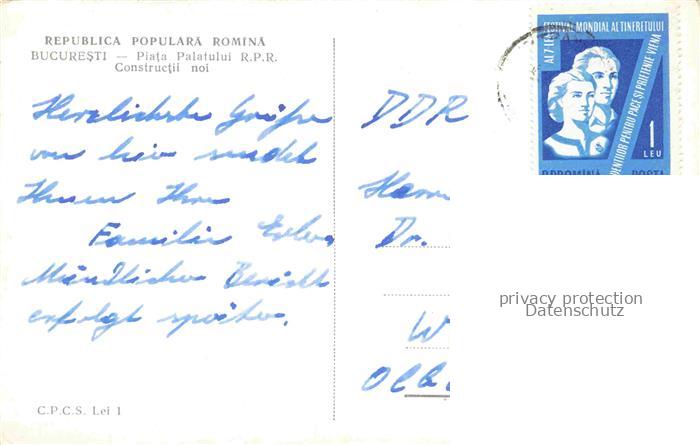 REPUBLICA POPULARĂ ROMÎNĂ
BUCUREȘTI — Piața Palatului R.P.R.
Construcții noi
Herzlichste Grüße
von hier sendet
Ihnen Ihre
Familie
Mündlicher Bericht
erfolgt später.
C.P.C.S. Lei 1
DDR
Dr.
W
AL 7-LEA FESTIVAL MONDIAL AL TINERETULUI
PENTRU PACE ȘI PRIETENIE VIENA
1
LEU
POSTA
privacy protection
Datenschutz